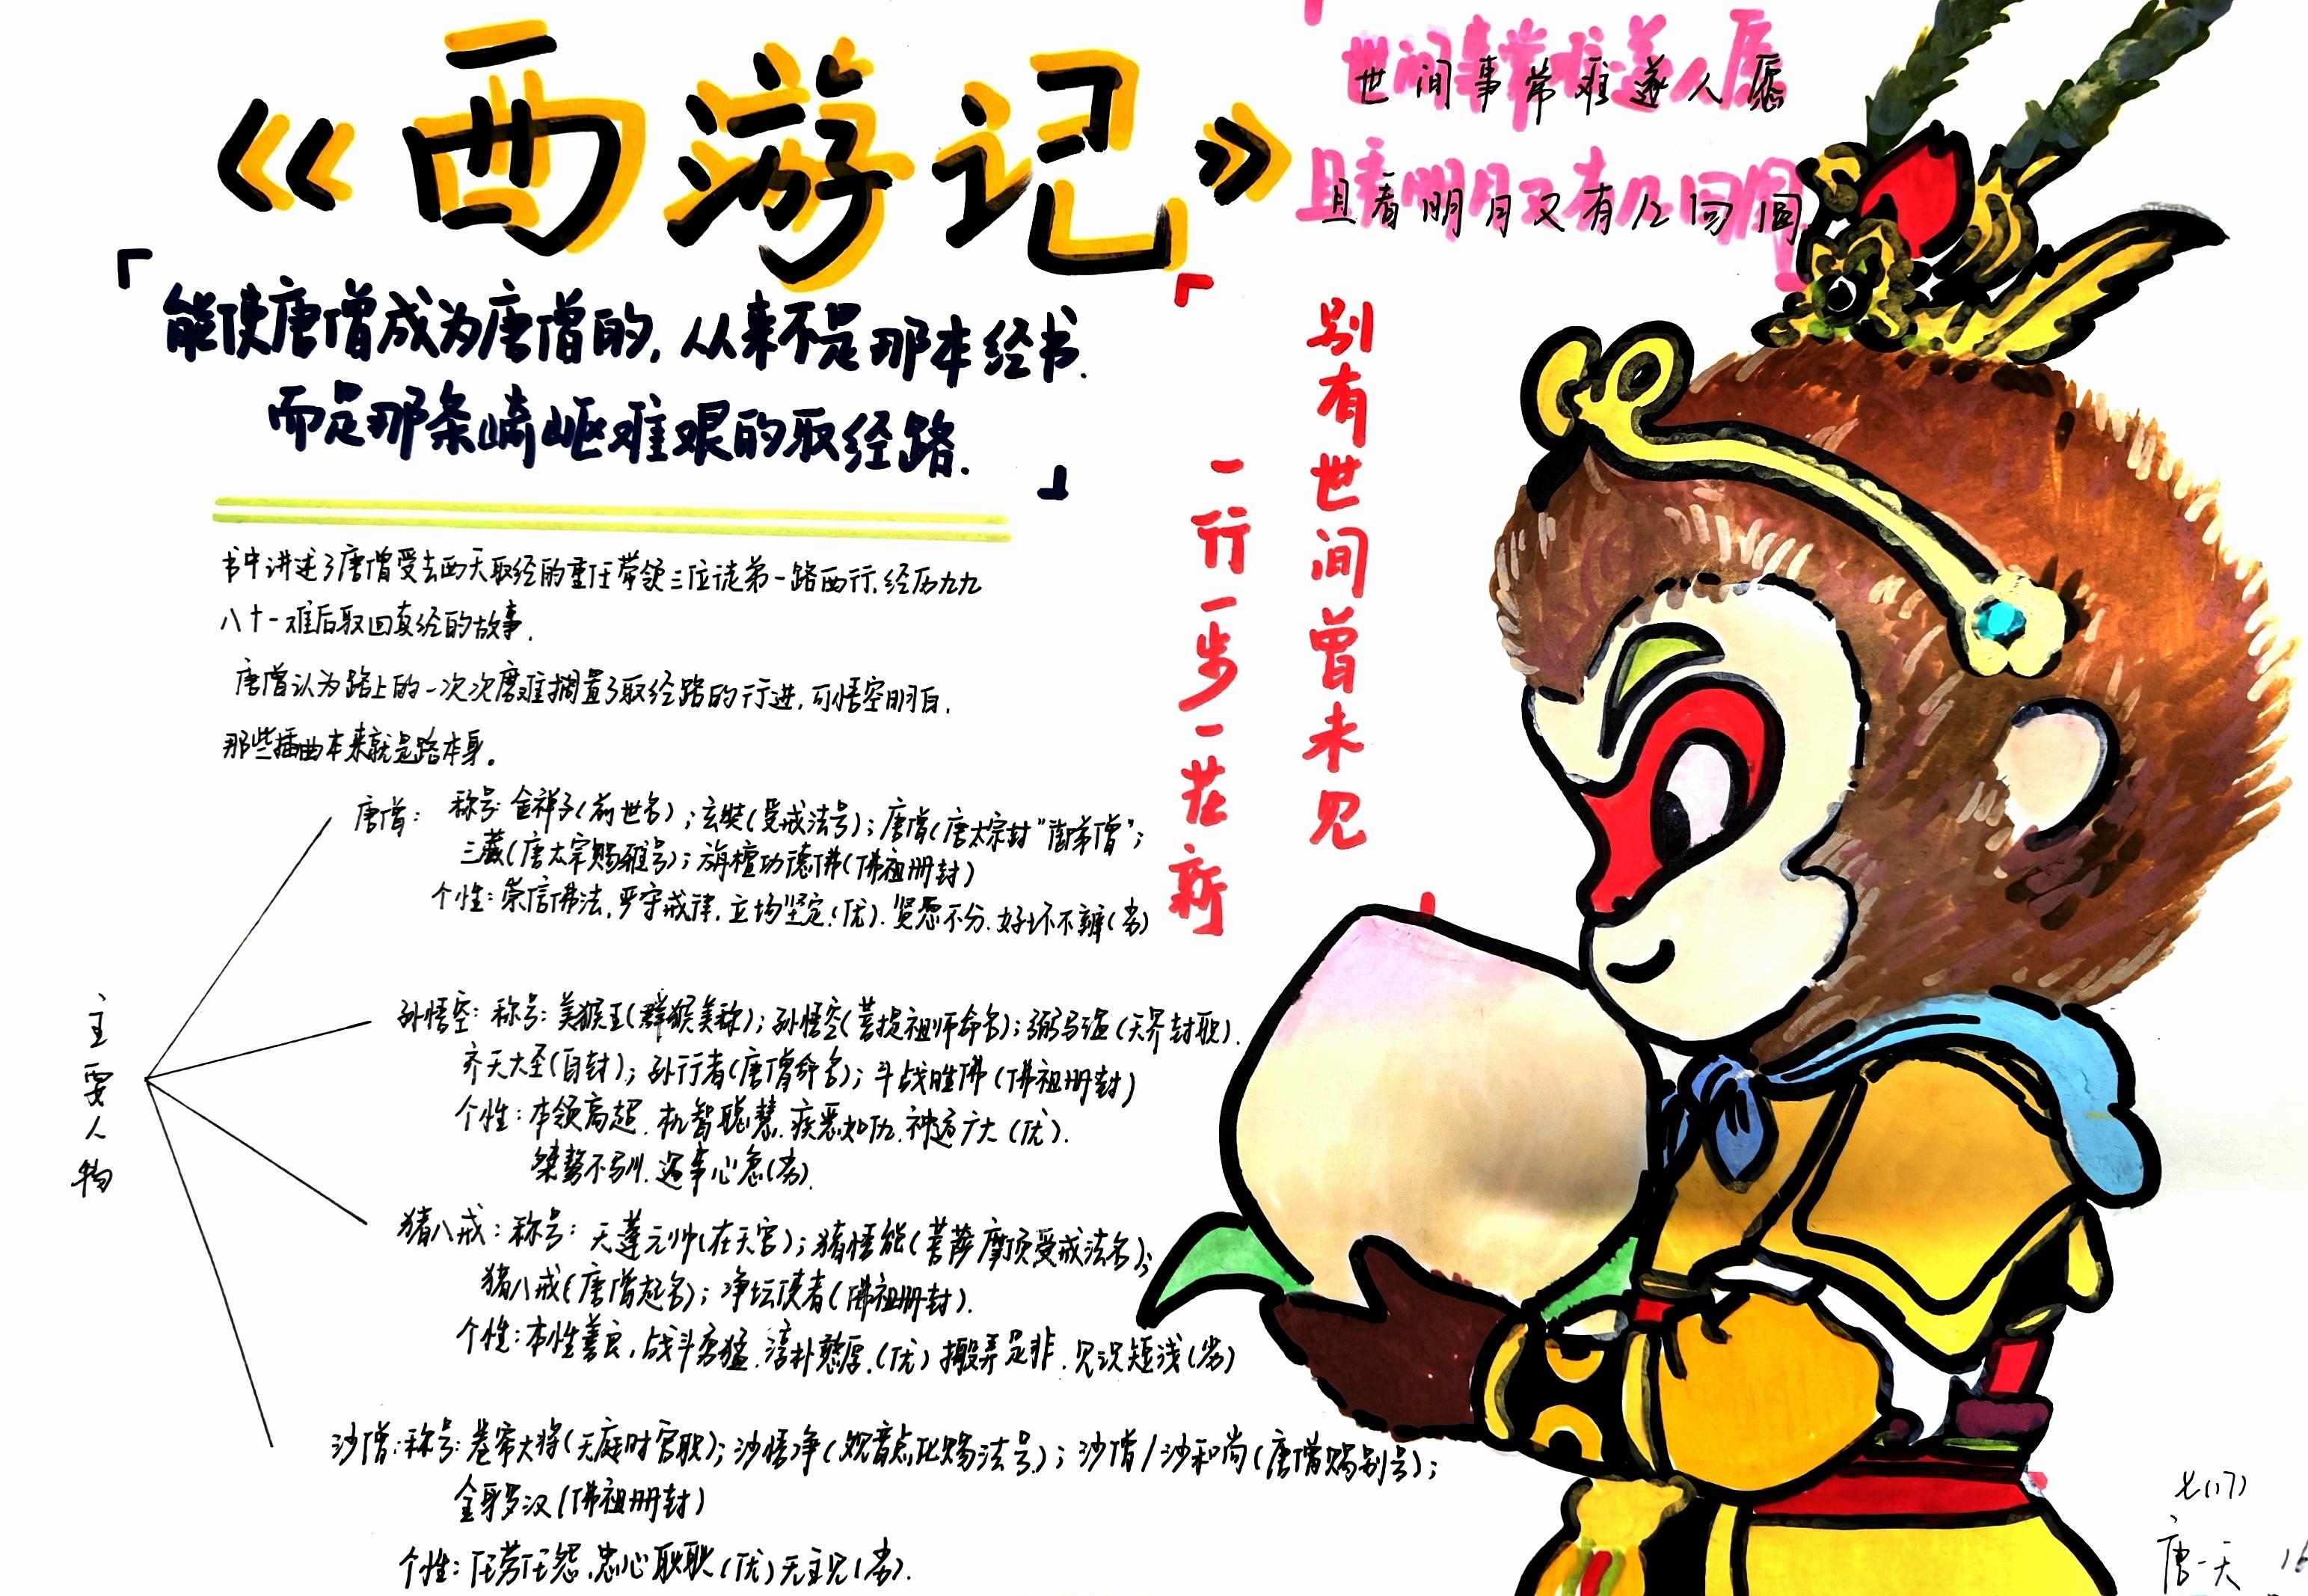 《西游记》
「能使唐僧成为唐僧的,从来不是那本经书.
而是那条崎岖难艰的取经路.」
世间事常难遂人愿
且看明月又有几回圆
「别有世间曾未见
一行一步一花新
书中讲述了唐僧受去西天取经的重任带领三位徒弟一路西行,经历九九
八十一难后取回真经的故事.
唐僧认为路上的一次次磨难搁置了取经路的行进,可悟空明白,
那些插曲本来就是路本身。
主要人物
唐僧: 称号:金禅子(前世名);玄奘(受戒法号);唐僧(唐太宗封"御弟僧";
三藏(唐太宗赐雅号);旃檀功德佛(佛祖册封)
个性:崇信佛法,严守戒律,立场坚定.(优).贤愚不分.好坏不辨(劣)
孙悟空:称号:美猴王(群猴美称);孙悟空(菩提祖师命名);弼马温(天界封职).
齐天大圣(自封);孙行者(唐僧命名);斗战胜佛(佛祖册封)
个性:本领高超.机智聪慧.疾恶如仇.神通广大(优).
桀骜不驯.遇事心急(劣).
猪八戒:称号:天蓬元帅(在天宫);猪悟能(菩萨摩顶受戒法名);
猪八戒(唐僧起名);净坛使者(佛祖册封).
个性:本性善良,战斗勇猛.淳朴憨厚.(优)搬弄是非.见识短浅(劣)
沙僧:称号:卷帘大将(天庭时官职);沙悟净(观音点化赐法号);沙僧/沙和尚(唐僧赐别号);
金身罗汉(佛祖册封)
个性:任劳任怨.忠心耿耿(优)无主见(劣).
七(17)
唐一天 16